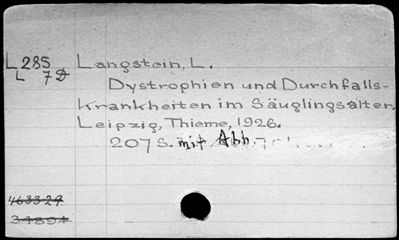 L 285 Langstein, L.
L 7 D
Dystrophien und Durchfalls-
krankheiten im Säuglingsalter.
Leipzig, Thieme, 1926.
207 S. mit Abb.
463329